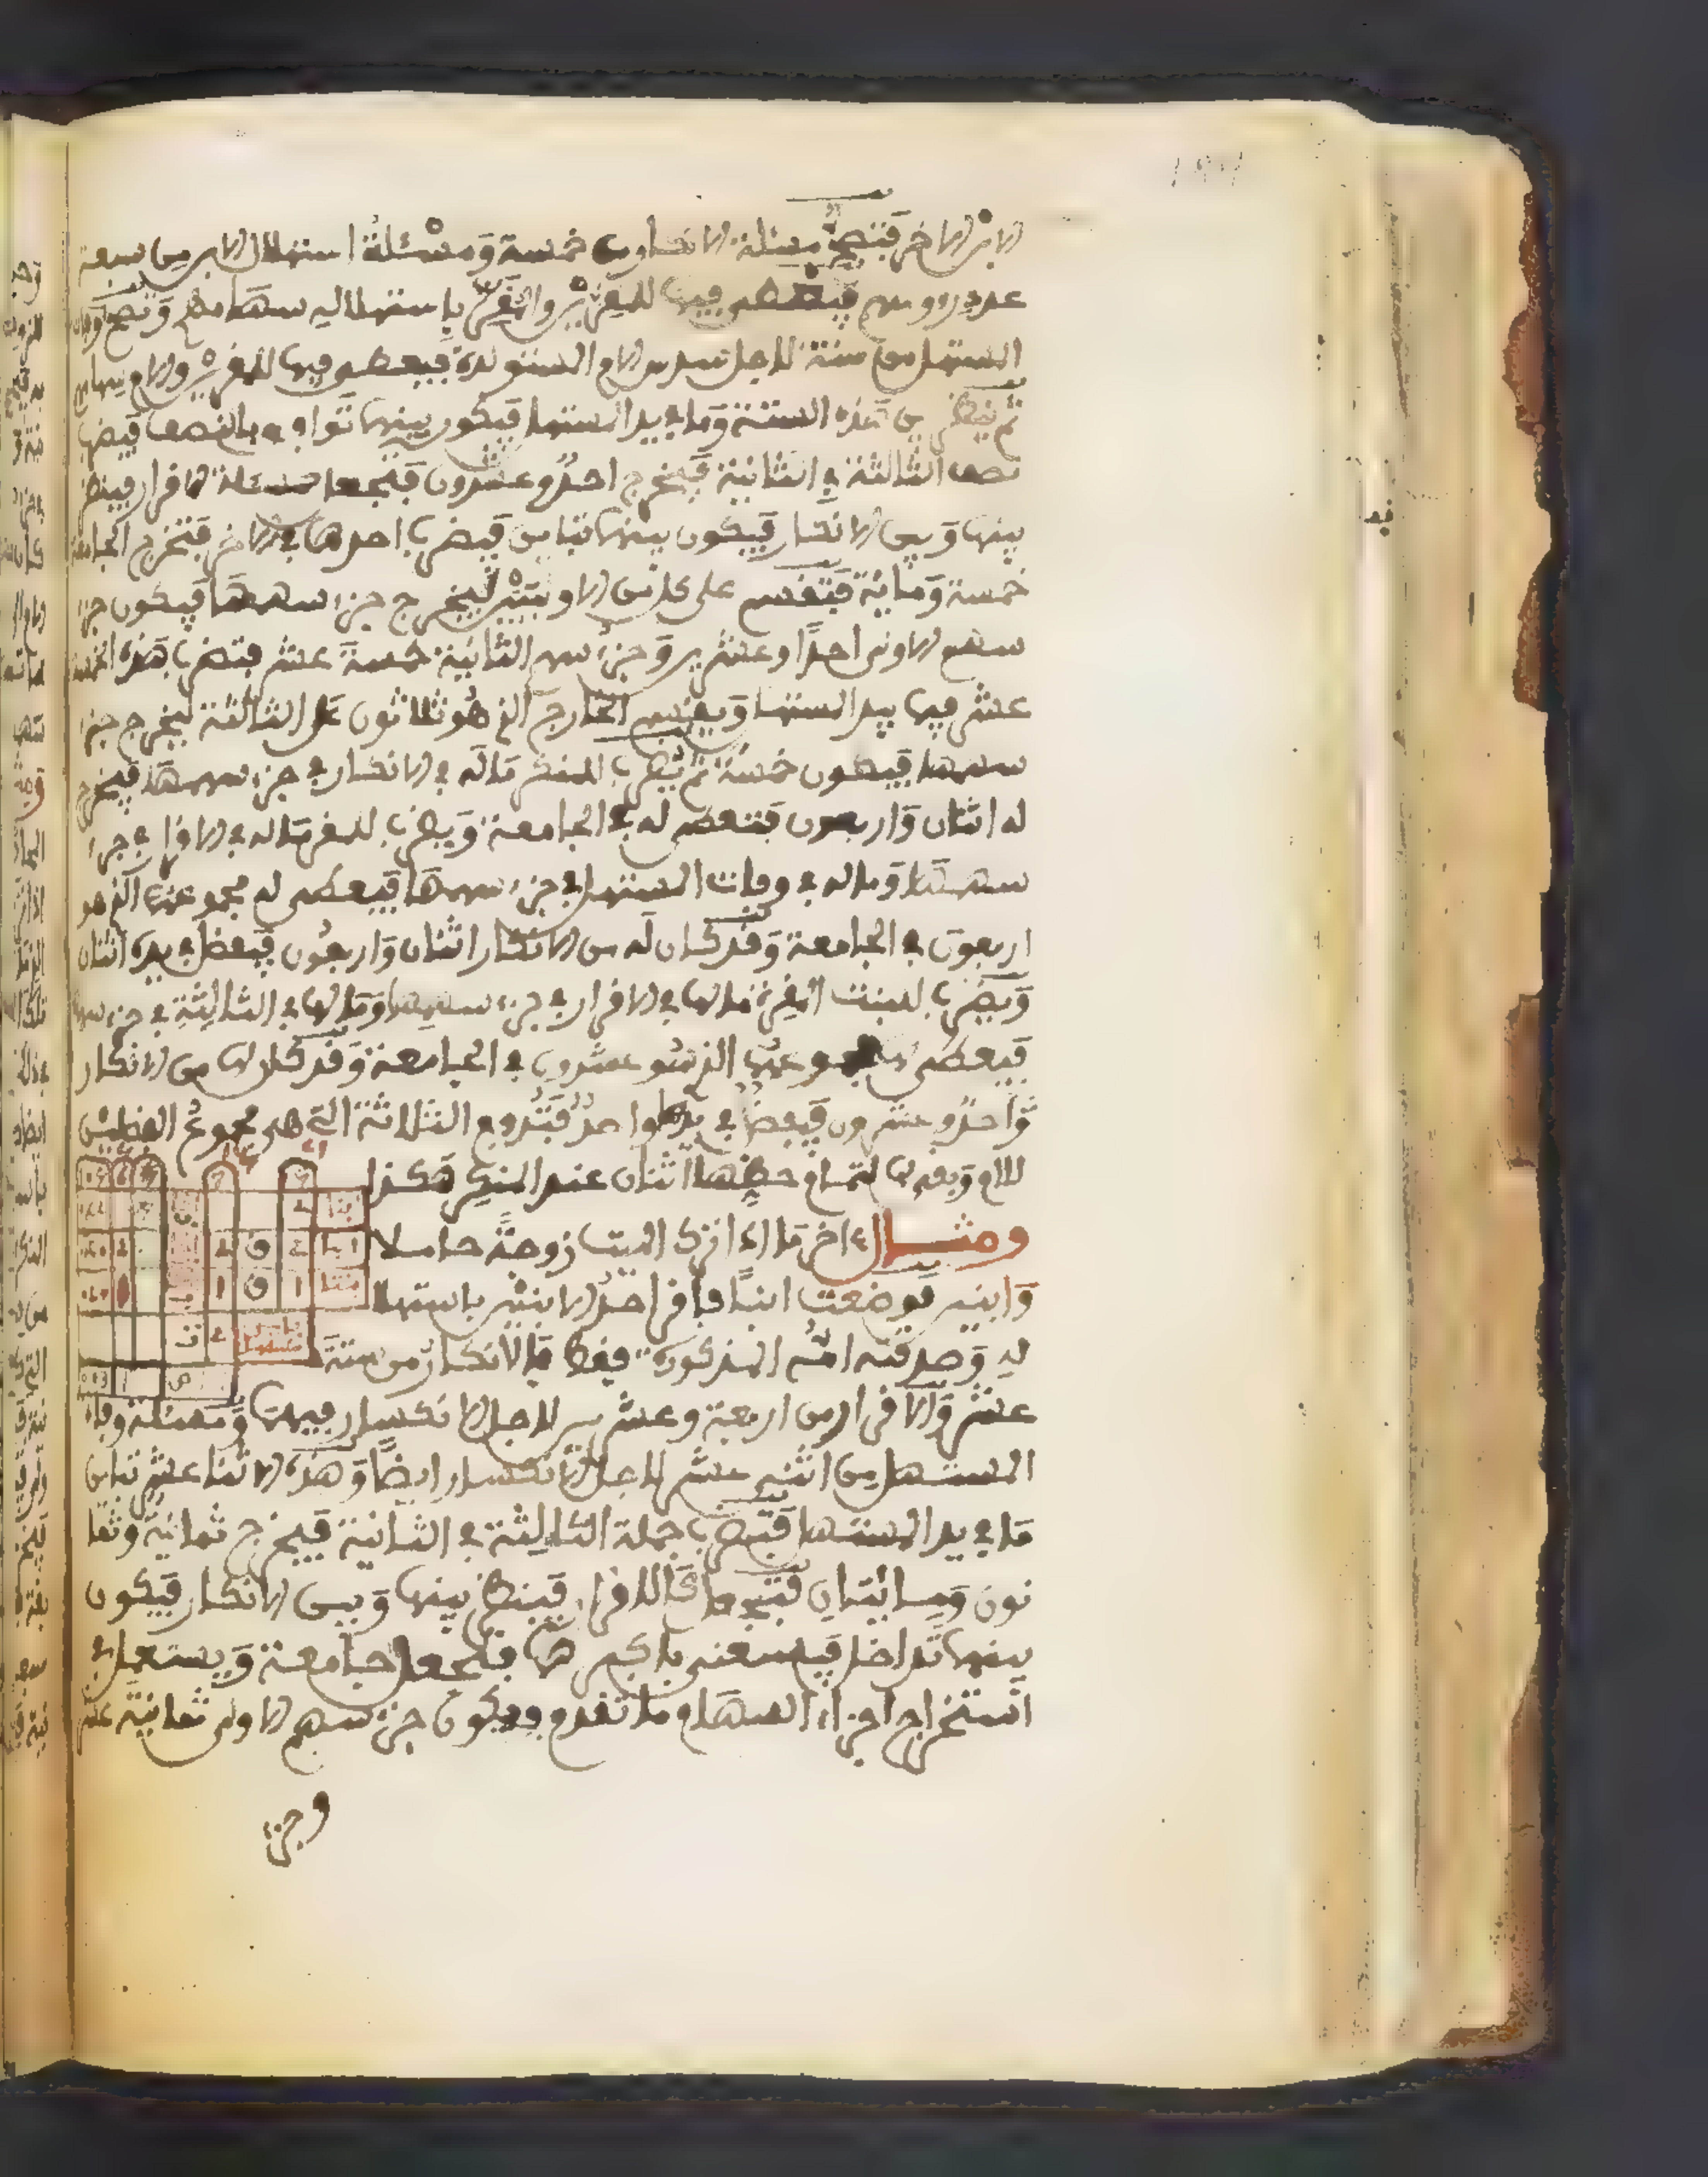 الابن الاخر فتصح مسئلة الانكار من خمسة ومسئلة استهلال الابن من سبعة
عدد رءوسهم فيعطى فيها للمقرين والمقر باستهلاله سهامهم وتصح وفات
المستهل من ستة لاجل سدس الام المستولدة فيعطى فيها للمقرين والام سهامهم
ثم ينظر بين هذه الستة وما بيد المستهل فيكون بينهما توافق بالنصف فيضرب
نصف الثالثة في الثانية فيخرج احد وعشرون فتجعل مسئلة الاقرار فينظر
بينها وبين الانكار فيكون بينهما تباين فيضرب احدهما في الاخر فتخرج الجامعة
خمسة ومائة فتقسم على كل من الاوليين ليخرج جزء سهمها فيكون جزء
سهم الاولى احدا وعشرين وجزء سهم الثانية خمسة عشر فتضرب هذه الخمسة
عشر فيما بيد المستهل ويقسم الخارج الذي هو ثلاثون على الثالثة ليخرج جزء
سهمها فيكون خمسة ثم يضرب للمنكر ماله في الانكار في جزء سهمها فيخرج
له اثنان واربعون فتعطى له في الجامعة ويضرب للمقر ماله في الاقرار في جزء
سهمها وماله في وفات المستهل في جزء سهمها فيعطى له مجموعهما الذي هو
اربعون في الجامعة وقد كان له من الانكار اثنان واربعون فيفضل في يده اثنان
ويضرب للبنت المقرة مالها في الاقرار في جزء سهمها ومالها في الثالثة في جزء سهمها
فيعطى لها مجموعهما الذي هو عشرون في الجامعة وقد كان لها من الانكار
واحد وعشرون فيفضل في يدها واحد فتدفع الثلاثة التي هي مجموع الفضلين
للام وبقي لها لتمام حظها اثنان عند المنكر هكذا
ومثال اخر ما اذا ترك الميت زوجة حاملا
وابنين فوضعت ابنا فاقر احد الابنين باستهلا
له وصدقته امه المذكورة فقط فالانكار من ستة
عشر والاقرار من اربعة وعشرين لاجل الانكسار فيهما ومسئلة وفاة
المستهل من اثني عشر لاجل الانكسار ايضا وهذه الاثنا عشر تباين
ما في يد المستهل فتضرب جملة الثالثة في الثانية فيخرج ثمانية وثما
نون ومائتان فتجعل للاقرار فينظر بينها وبين الانكار فيكون
بينهما تداخل فيستغنى باكبرهما فتجعل جامعة ويستعمل في
استخراج اجزاء السهام ما تقدم ويكون جزء سهم الاولى ثمانية عشر
وجزء